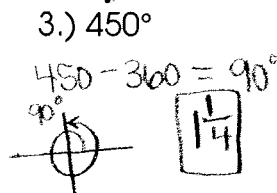 3.) 450°
450 - 360 = 90°
90°
1 1/4